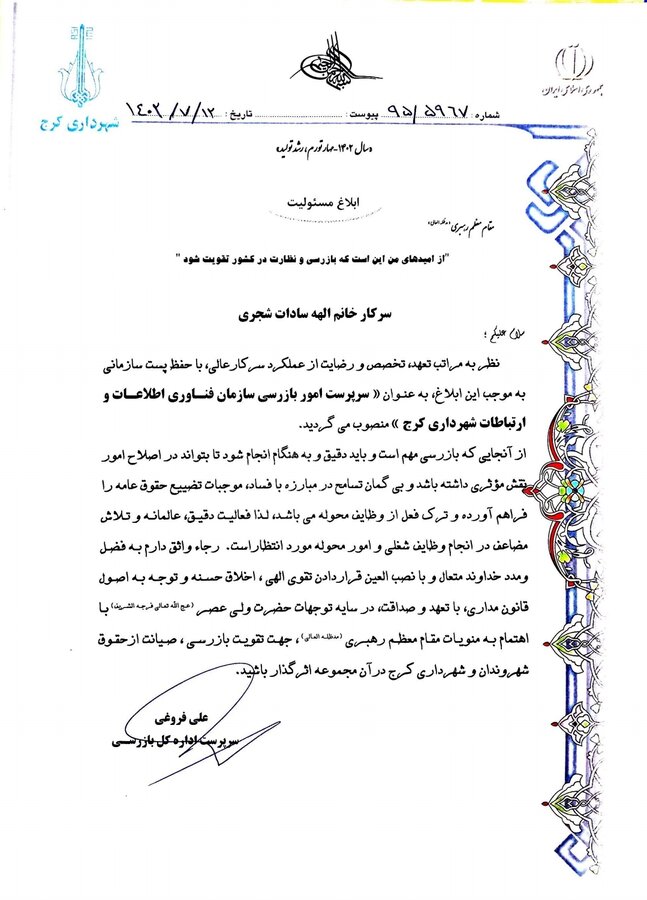 جمهوری اسلامی ایران
شهرداری کرج
شماره: ۹۵/۵۹۶۷ پیوست: تاریخ: ۱۴۰۲/۷/۱۲
«سال ۱۴۰۲-مهار تورم، رشد تولید»
ابلاغ مسئولیت
مقام معظم رهبری
"از امیدهای من این است که بازرسی و نظارت در کشور تقویت شود "
سرکار خانم الهه سادات شجری
سلام علیکم ؛
نظر به مراتب تعهد، تخصص و رضایت از عملکرد سرکارعالی، با حفظ پست سازمانی
به موجب این ابلاغ، به عنوان « سرپرست امور بازرسی سازمان فناوری اطلاعات و
ارتباطات شهرداری کرج » منصوب می گردید.
از آنجایی که بازرسی مهم است و باید دقیق و به هنگام انجام شود تا بتواند در اصلاح امور
نقش مؤثری داشته باشد و بی گمان تسامح در مبارزه با فساد، موجبات تضییع حقوق عامه را
فراهم آورده و ترک فعل از وظایف محوله می باشد، لذا فعالیت دقیق، عالمانه و تلاش
مضاعف در انجام وظایف شغلی و امور محوله مورد انتظاراست. رجاء واثق دارم به فضل
ومدد خداوند متعال و با نصب العین قراردادن تقوی الهی ، اخلاق حسنه و توجه به اصول
قانون مداری، با تعهد و صداقت، در سایه توجهات حضرت ولی عصر (عج الله تعالی فرجه الشریف) با
اهتمام به منویات مقام معظم رهبری (مدظله العالی)، جهت تقویت بازرسی ، صیانت ازحقوق
شهروندان و شهرداری کرج درآن مجموعه اثرگذار باشید.
علی فروغی
سرپرست اداره کل بازرسی